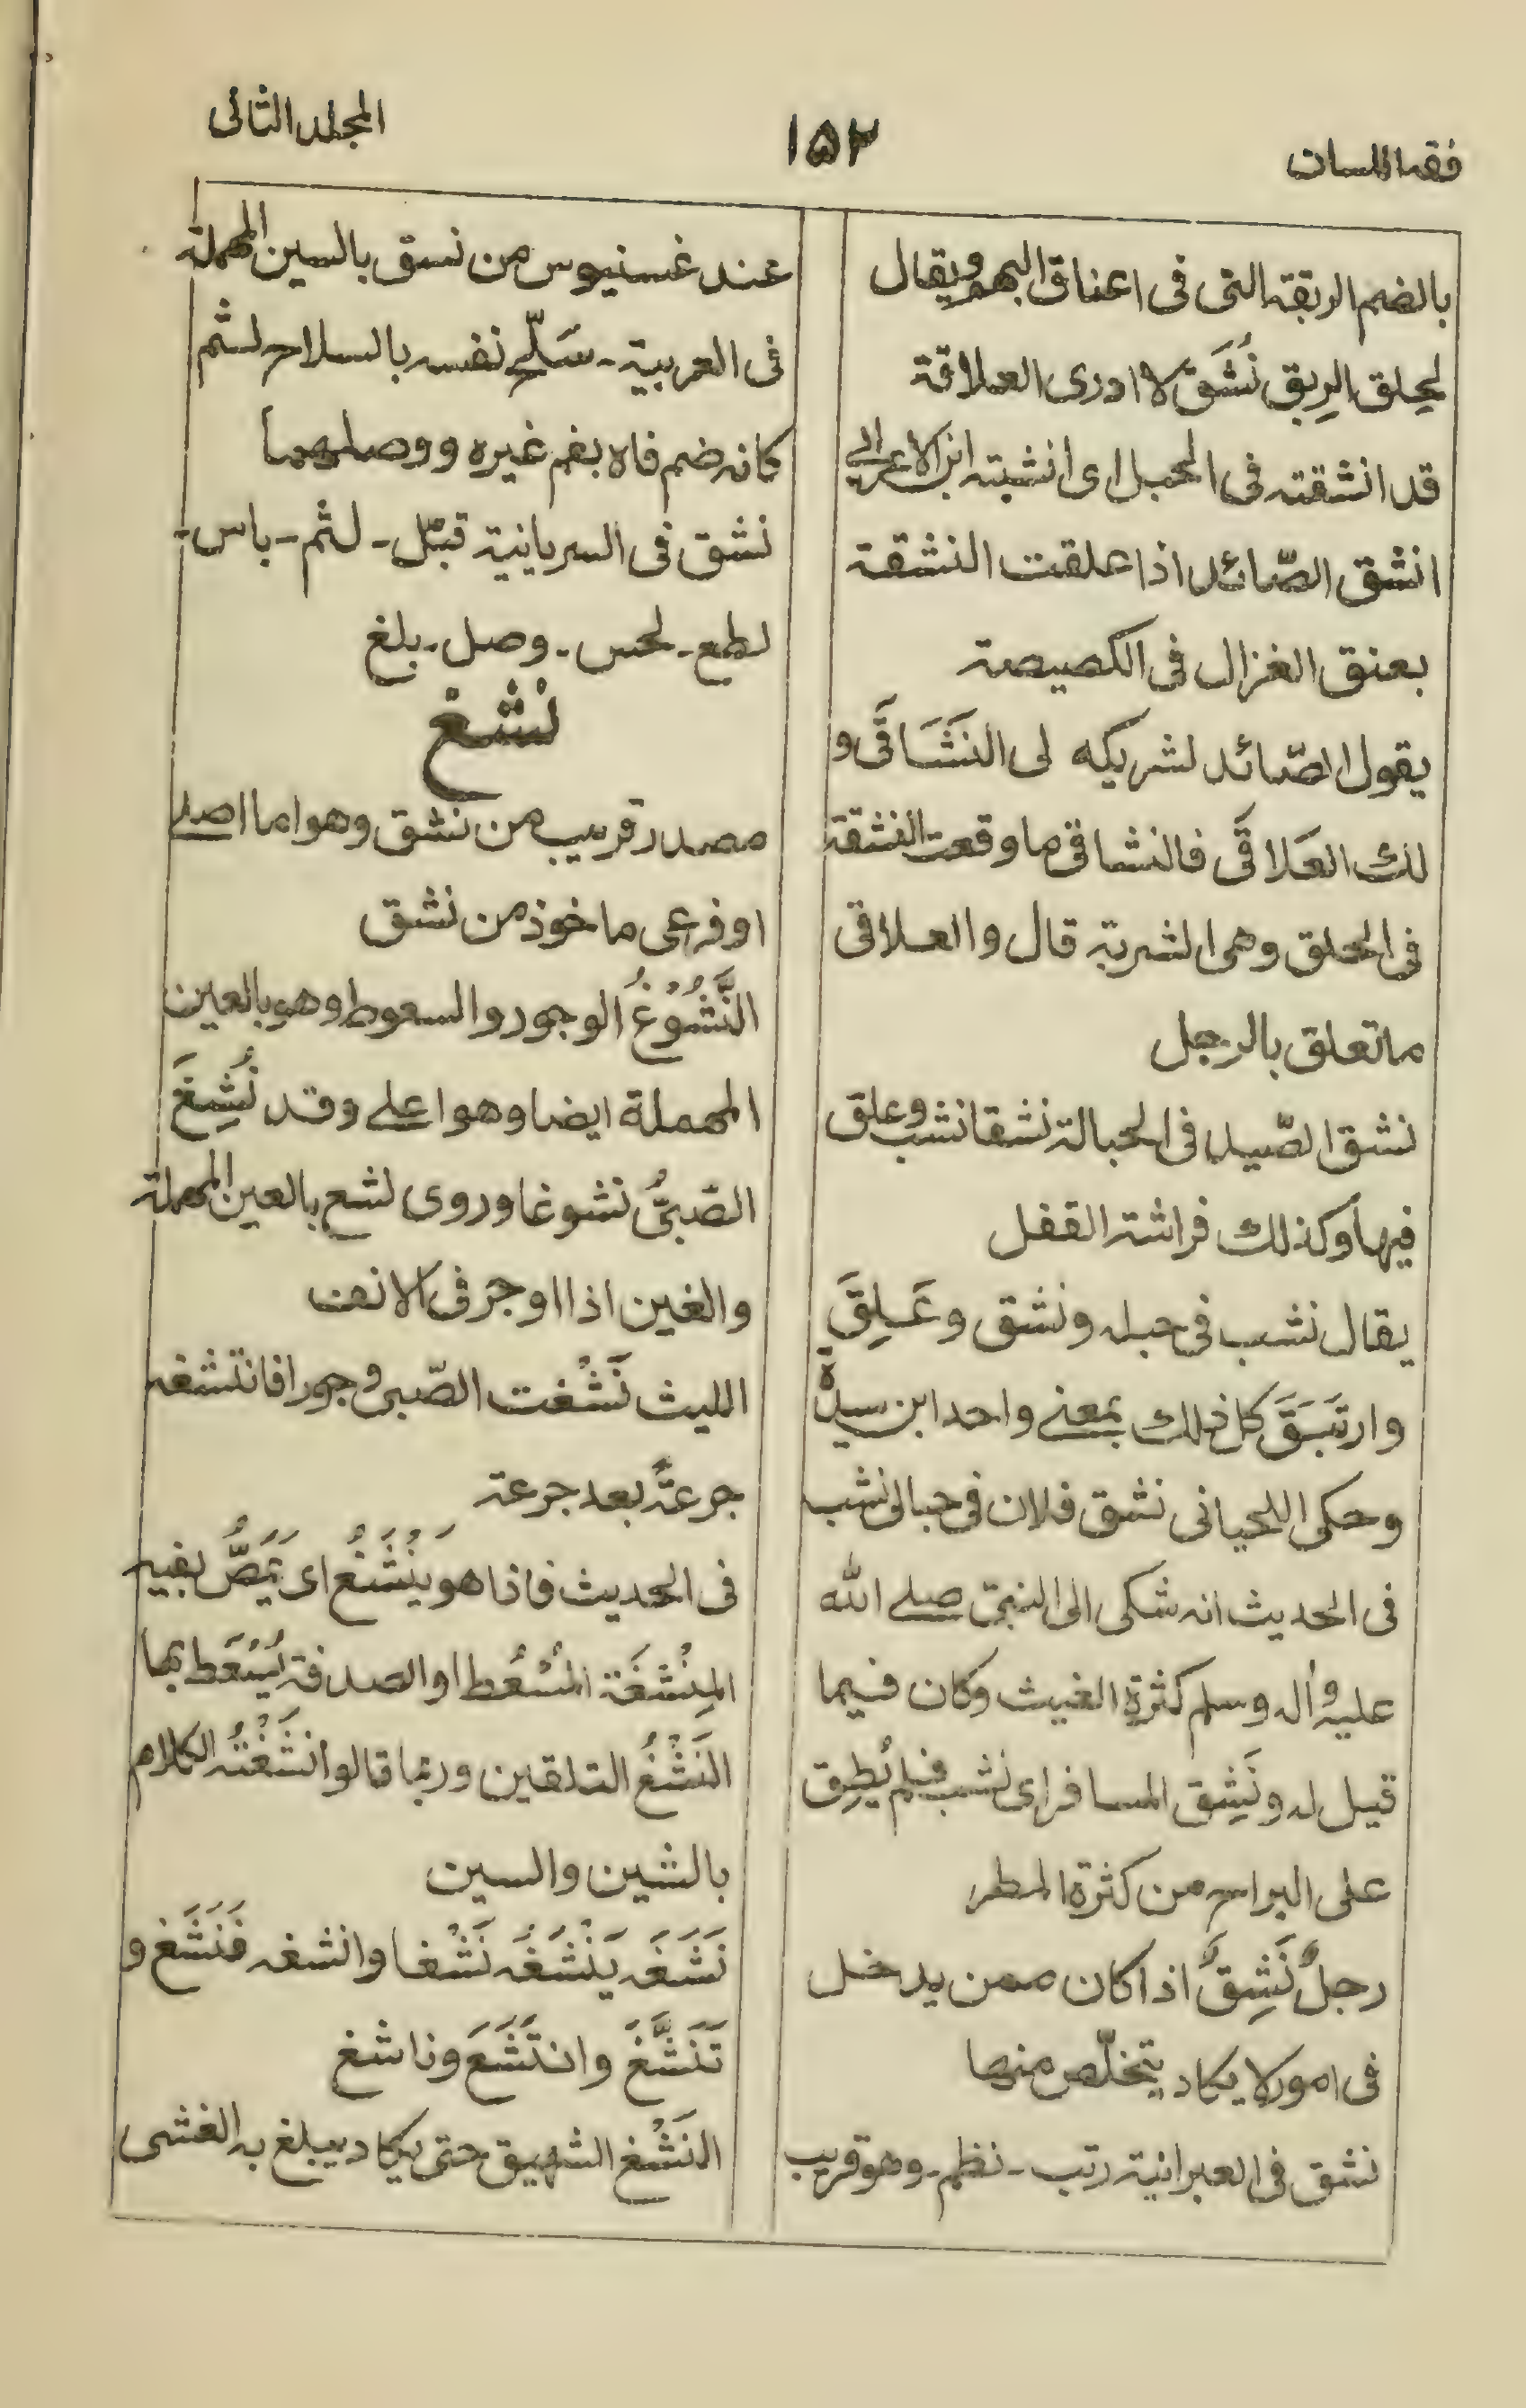 فقه اللسان
١٥٢
المجلد الثانى
بالضم الربقة التى فى اعناق البهم ويقال
لحلق الرِبق نُشَق لا ادرى العلاقة
قد انشقته فى الحبل اى انشبته ابن الاعرابى
انشق الصّائد اذا علقت النشقة
بعنق الغزال فى الكصيصة
يقول الصّائد لشريكه لى النَشَاقَى و
لك العَلاقَى فالنشاقى ما وقعت النشقة
فى الحلق وهى الشربة قال والعلاقى
ما تعلق بالرجل
نشق الصّيد فى الحبالة نشقا نشب وعلق
فيها وكذلك فراشة القفل
يقال نشب فى حبله ونشق وعَلِقَ
وارتَبَقَ كل ذلك بمعنے واحد ابن سيدة
وحكى اللحيانى نشق فلان فى حبالى نشب
فى الحديث انه شكى الى النبىّ صلے الله
عليه وأله وسلم كثرة الغيث وكان فيما
قيل له ونَشِق المسافر اى نشب فلم يُطِق
على البراح من كثرة المطر
رجلٌ نَشِقٌ اذا كان ممن يدخل
فى امور لا يكاد يتخلّص منها
نشق فى العبرانية رتب - نظم - وهو قريب
عند غسنيوس من نسق بالسين المهملة
فى العربية - سَلّح نفسه بالسلاح لثم
كانه ضم فاه بفم غيره ووصلهما
نشق فى السريانية قبّل - لثم - باس -
لطع - لحس - وصل - بلغ
نْشْغْ
مصدر قريب من نشق وهو اما اصلے
او فرعى ماخوذ من نشق
النَّشُوْغُ الوجور والسعوط وهو بالعين
المهملة ايضا وهو اعلے وقد نُشِغَ
الصّبىُّ نشوغا وروى نشع بالعين المهملة
والغين اذا اوجر فى الانف
الليث نَشْغت الصّبى وجورا فانتشغه
جرعةً بعد جرعة
فى الحديث فاذا هو يَنْشَغُ اى يَمَصُّ بفيه
المِنْشَغَة المُسْعُط او الصدفة يُسْعَط بها
النَشْغُ التلقين وربما قالوا نَشَغْتُه الكلام
بالشين والسين
نَشَغَه يَنْشَغُه نَشْغا وانشغه فَنَشَغ و
تَنَشَّغَ وانتَشَغَ وناشغ
النَشْغ الشهيق حتى يكاد يبلغ به الغشى